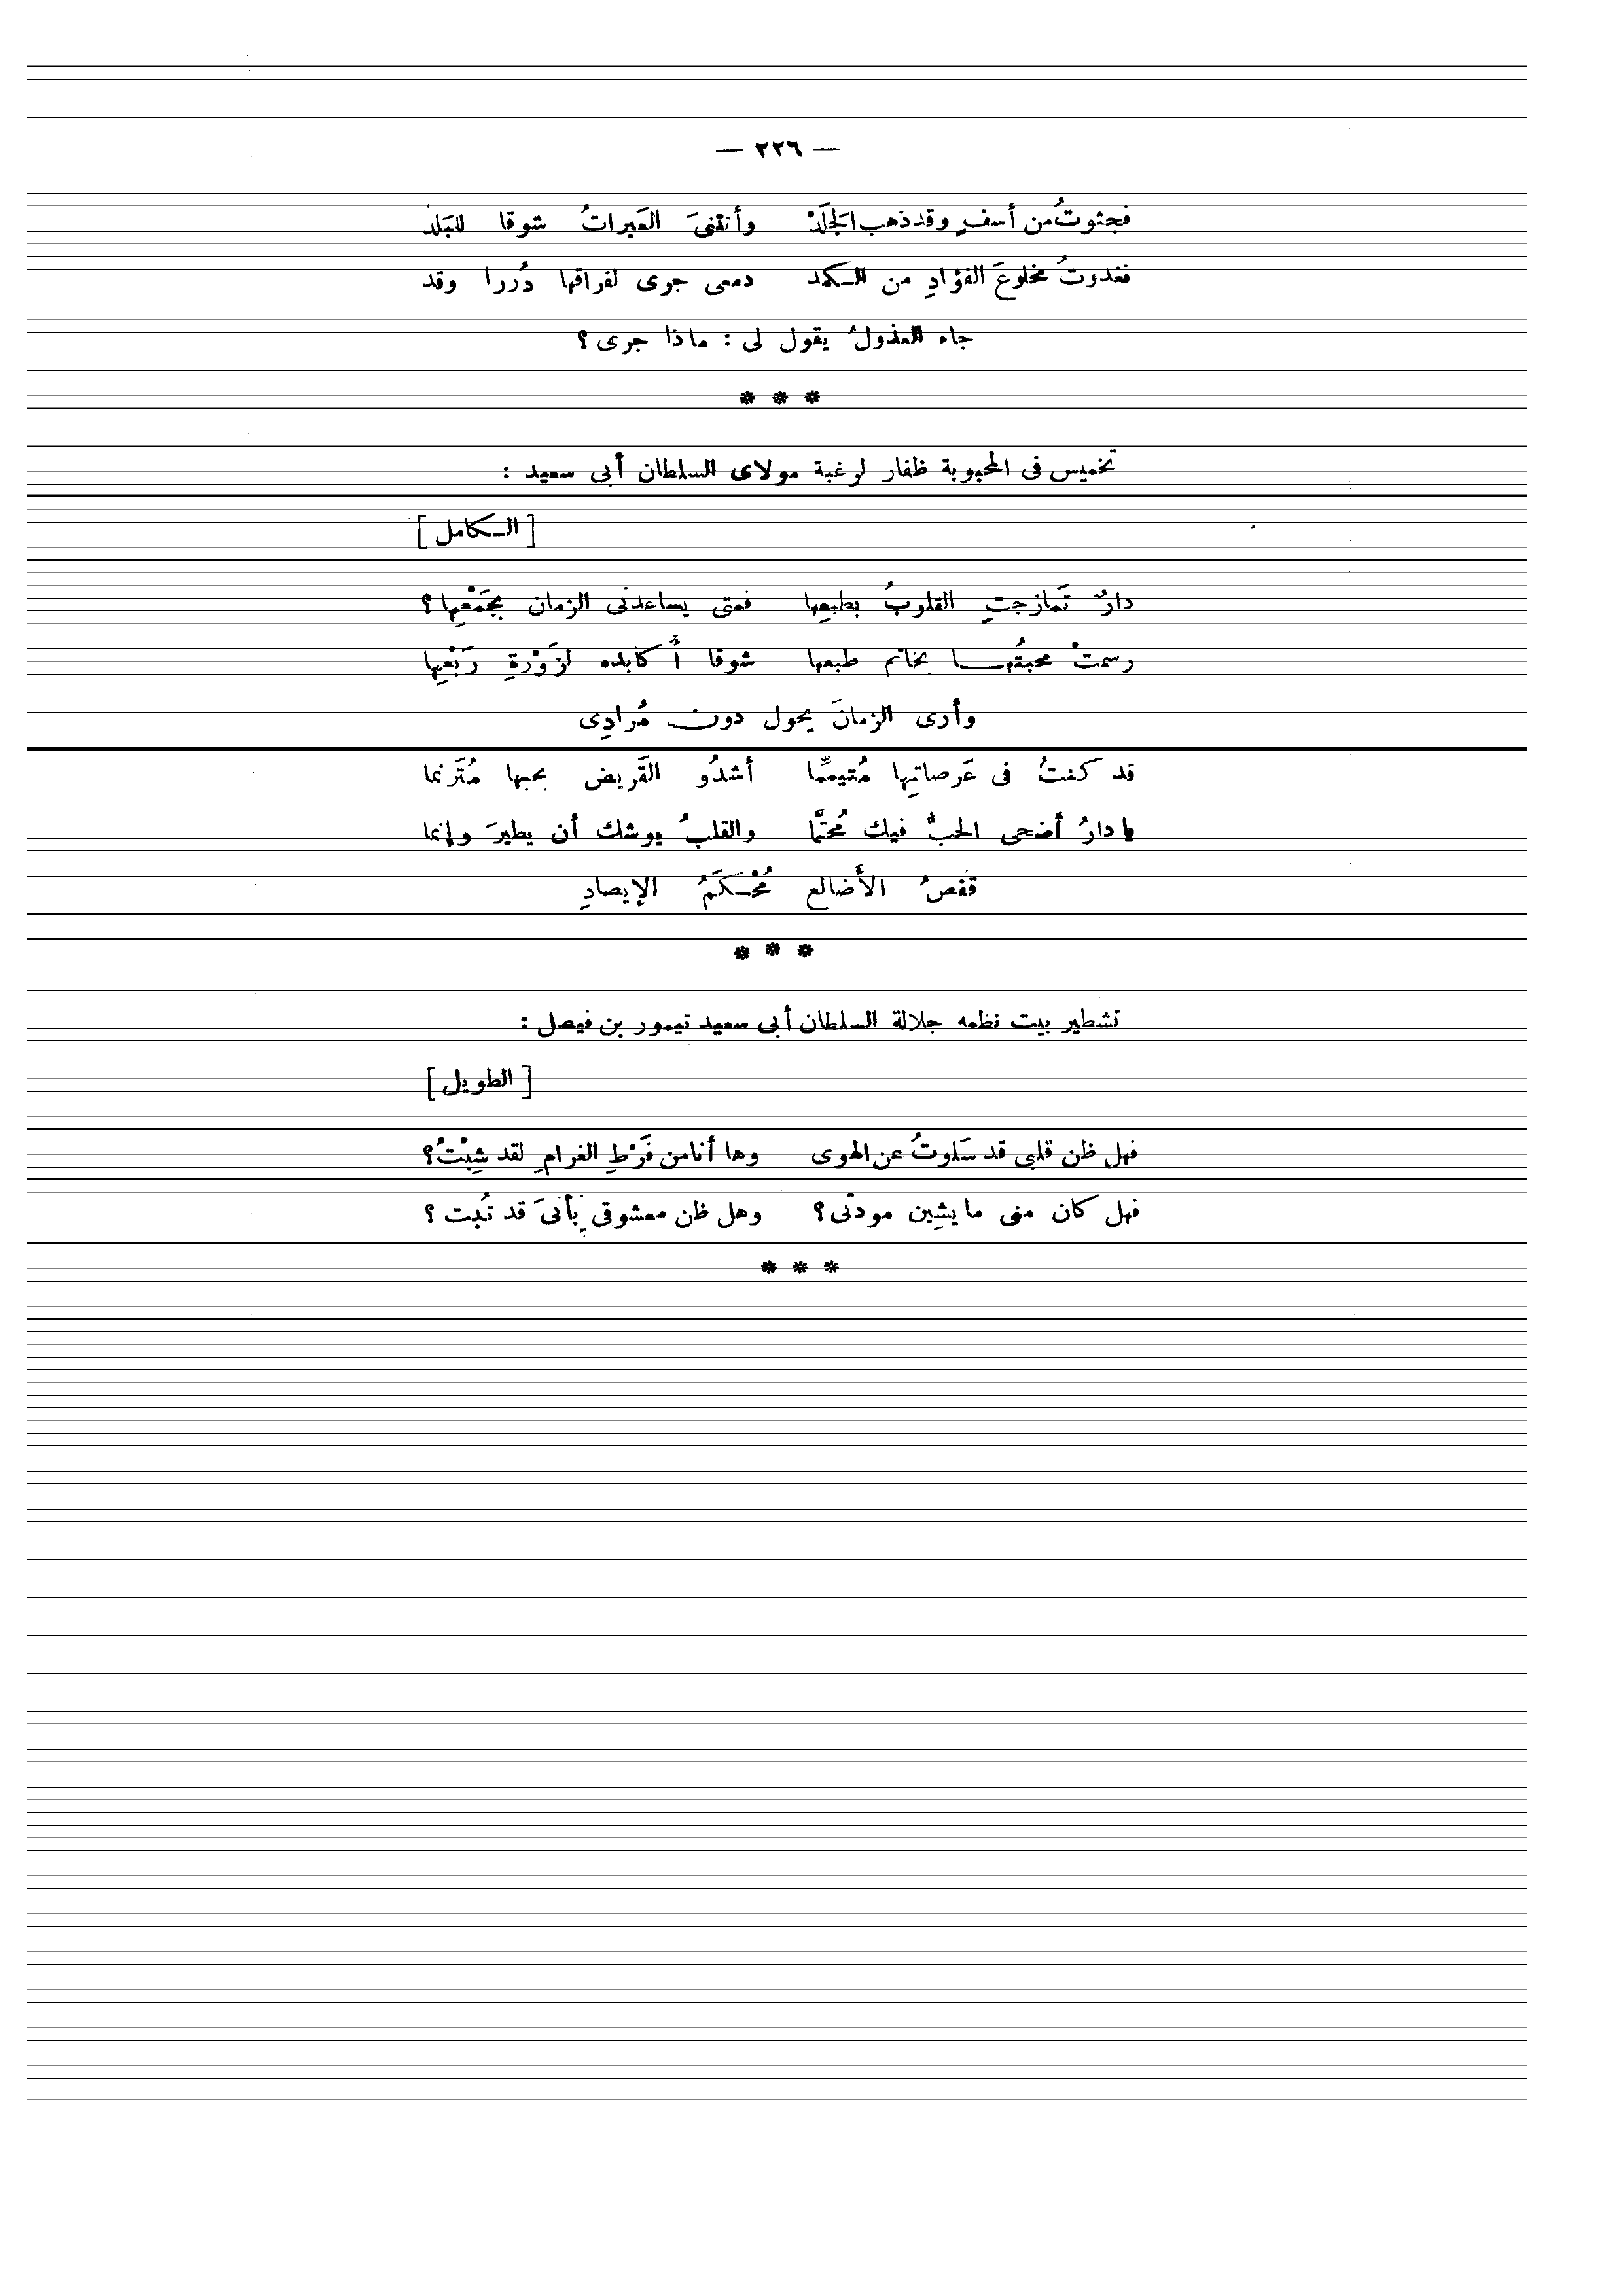 — ٢٢٦ —
فجثوتُ من أسفٍ وقد ذهب الجَلَدْ وأتتنىَ العَبراتُ شوقا للبَلد
فغدوتُ مخلوعَ الفؤادِ من الـكمد دمعى جرى لفراقها دُررا وقد
جاء العذولُ يقول لى : ماذا جرى ؟
* * *
تخميس فى المحبوبة ظفار لرغبة مولاى السلطان أبى سعيد :
[ الـكامل ]
دارٌ تَمازجتِ القلوبُ بطبعِها فمتى يساعدنى الزمان بجَمْعِها ؟
رسمتْ محبتُهـا بخاتم طبعها شوقا أُكابده لزَوْرةِ رَبْعِها
وأرى الزمانَ يحول دون مُرادِى
قد كنتُ فى عَرصاتِها مُتيمِّما أشدُو القَريض بحبها مُتَرنما
يا دارُ أضحى الحبُّ فيك مُحتَّما والقلبُ يوشك أن يطيرَ وإنما
قفصُ الأضالع مُحْـكَمُ الإيصادِ
* * *
تشطير بيت نظمه جلالة السلطان أبى سعيد تيمور بن فيصل :
[ الطويل ]
فهل ظن قلبى قد سَلوتُ عن الهوى وها أنا من فَرْطِ الغرامِ لقد شِبْتُ ؟
فهل كان منى ما يشِين مودتى ؟ وهل ظن معشوقى بأنىَ قد تُبت ؟
* * *